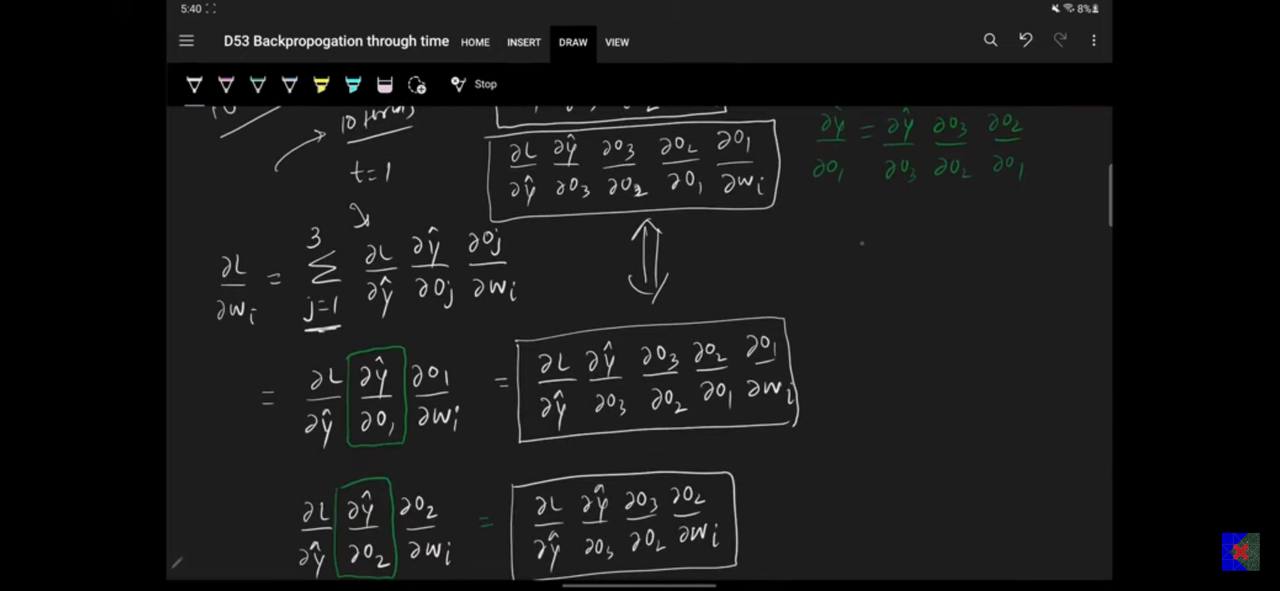 5:40 8%
D53 Backpropogation through time HOME INSERT DRAW VIEW
Stop
10 terms
t=1
∂L/∂ŷ ∂ŷ/∂O3 ∂O3/∂O2 ∂O2/∂O1 ∂O1/∂Wi
∂ŷ/∂O1 = ∂ŷ/∂O3 ∂O3/∂O2 ∂O2/∂O1
∂L/∂Wi = 3 Σ j=1 ∂L/∂ŷ ∂ŷ/∂Oj ∂Oj/∂Wi
= ∂L/∂ŷ ∂ŷ/∂O1 ∂O1/∂Wi = ∂L/∂ŷ ∂ŷ/∂O3 ∂O3/∂O2 ∂O2/∂O1 ∂O1/∂Wi
∂L/∂ŷ ∂ŷ/∂O2 ∂O2/∂Wi = ∂L/∂ŷ ∂ŷ/∂O3 ∂O3/∂O2 ∂O2/∂Wi